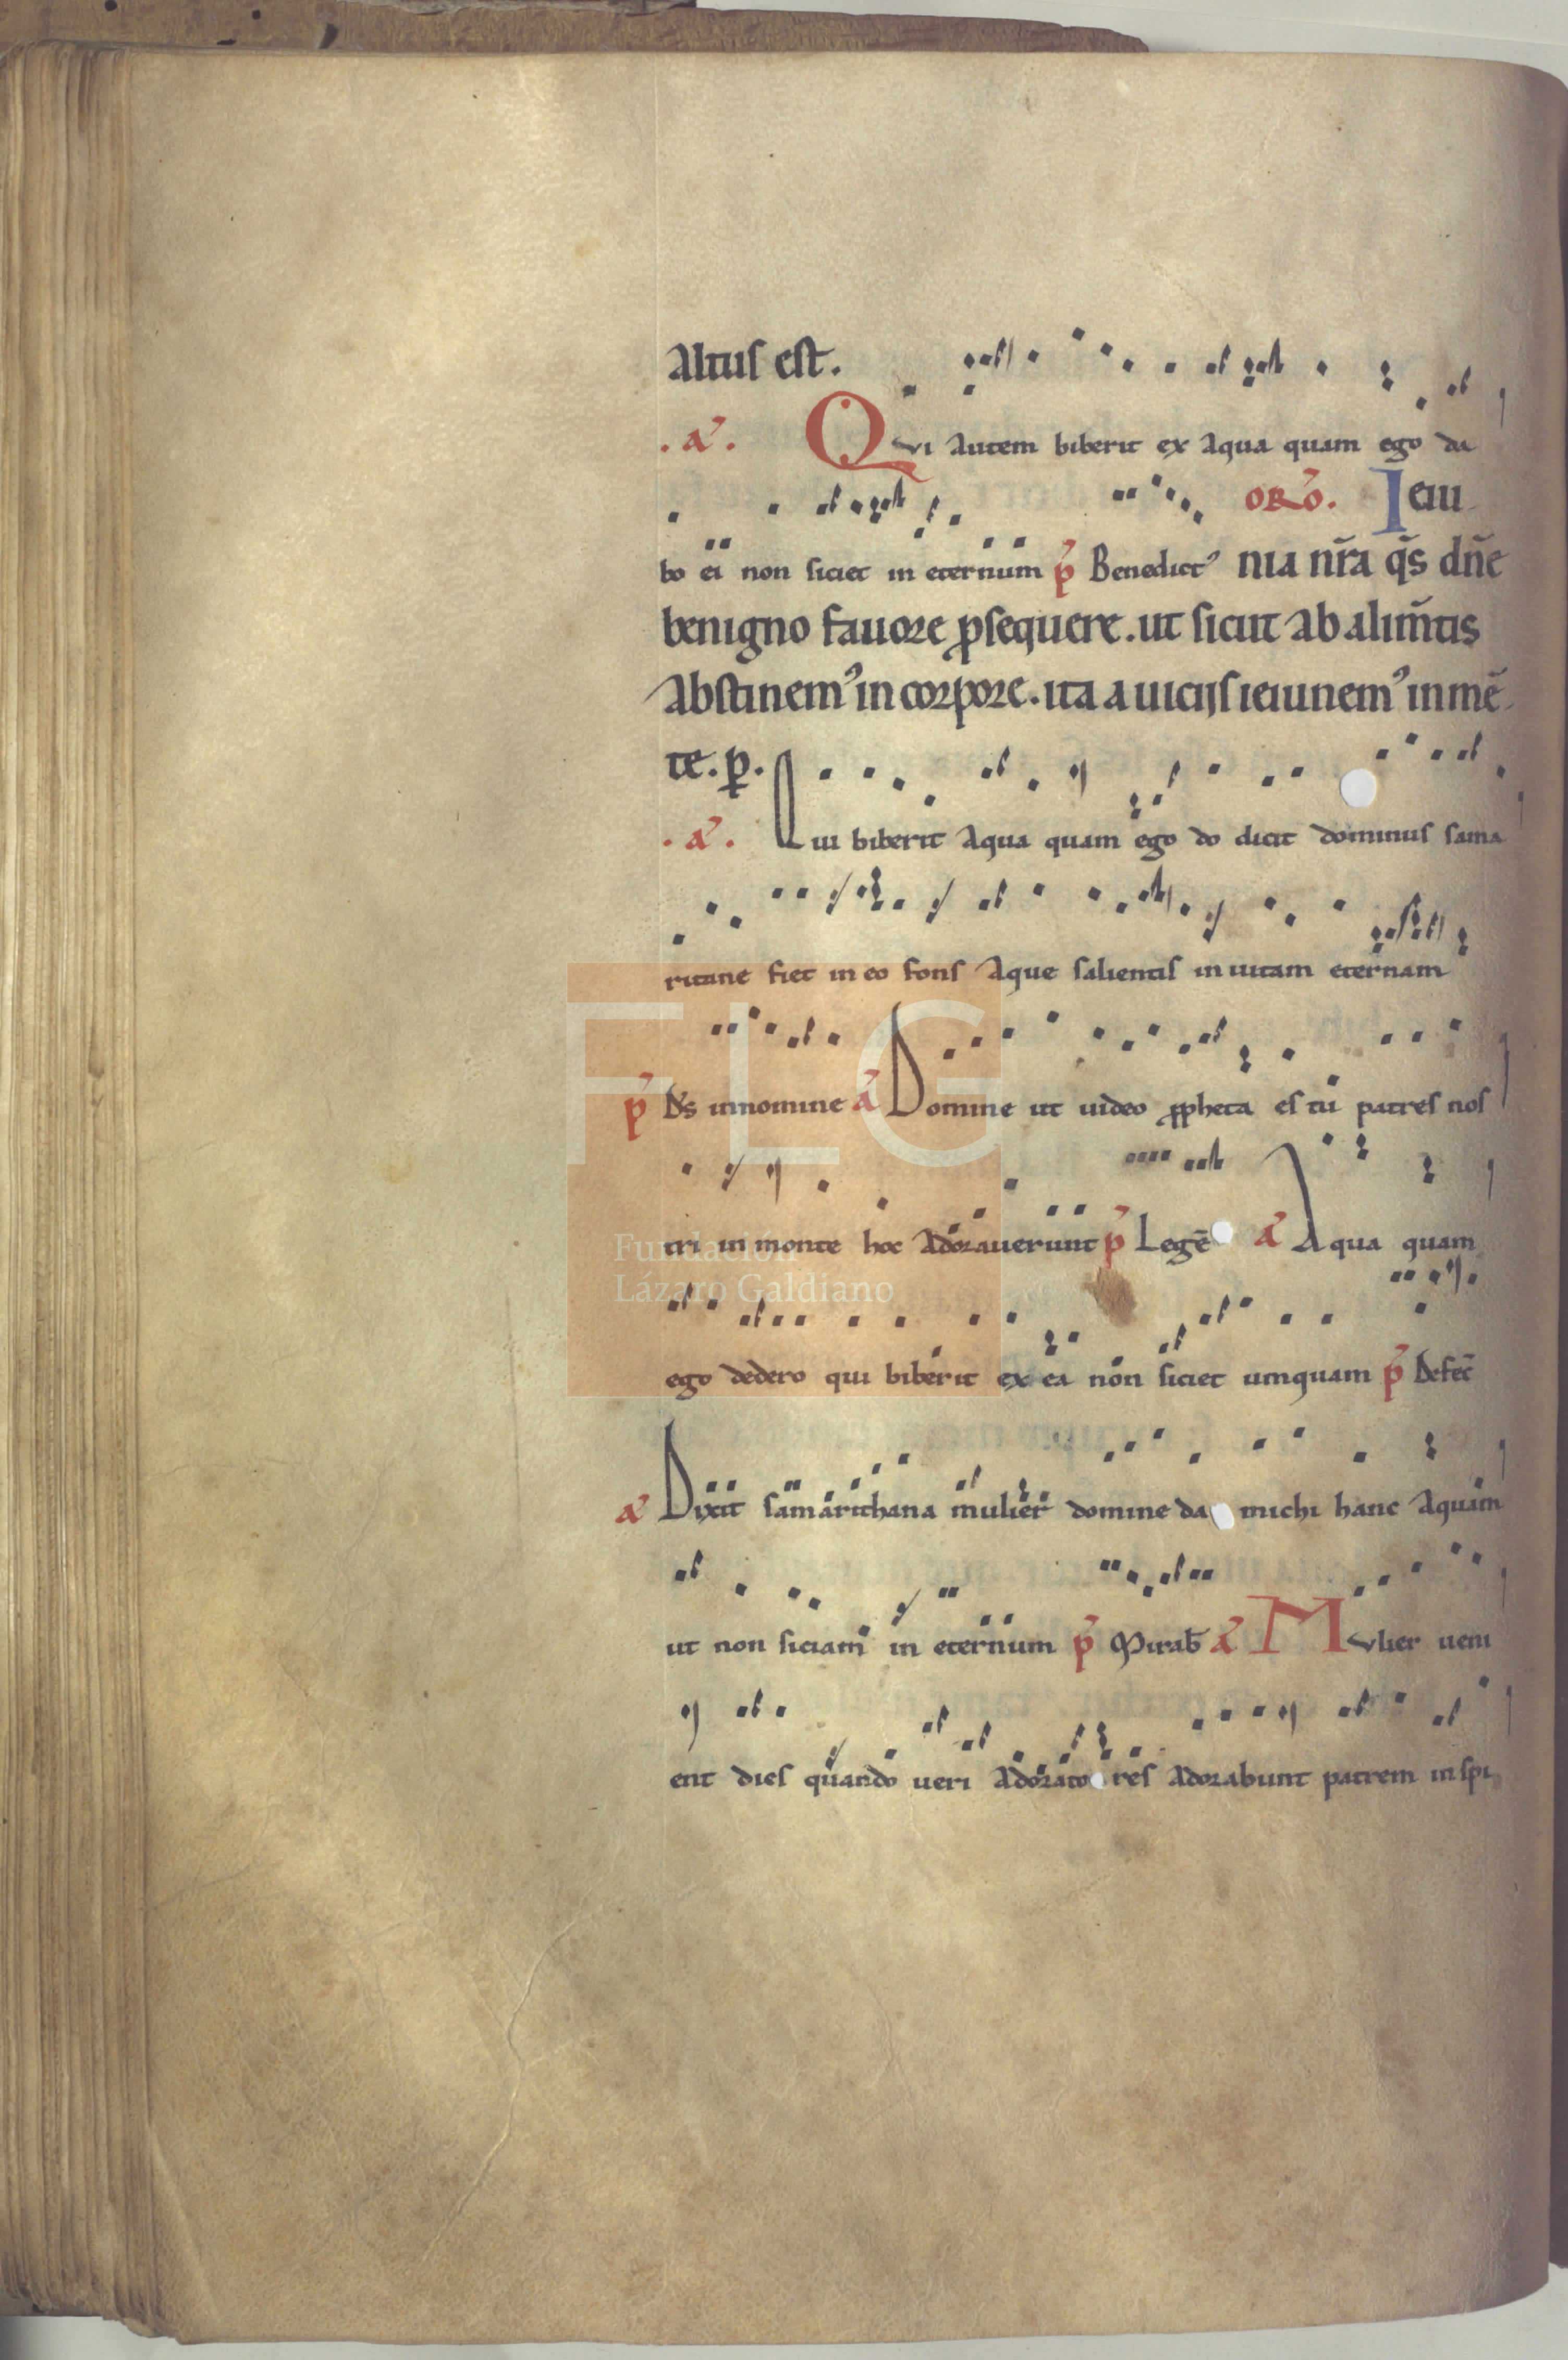 altus est.
.a. Qvi autem biberit ex aqua quam ego da
ORO. Ieiu
bo ei non siciet in eternum p̄ Benedictꝰ nia nr̄a q̄s dn̄e
benigno fauore ꝓsequere. ut sicut ab alim̄tis
abstinemꝰ in corpore. ita a uicijs ieiunemꝰ in mē
te. p.
.a. Qui biberit aqua quam ego do dicit dominus sama
ritane fiet in eo fons aque salientis in uitam eternam
p̄ Ds̄ in nomine a Domine ut uideo ꝓpheta es tu patres nos
tri in monte hoc adorauerunt p̄ Legē a Aqua quam
ego dedero qui biberit ex ea non siciet umquam p̄ Defec̄
a Dixit samarithana mulier domine da michi hanc aquam
ut non siciam in eternum p̄ Mirab̄ a Mvlier ueni
ent dies quando ueri adoratores adorabunt patrem in spi
FLG
Fundación
Lázaro Galdiano